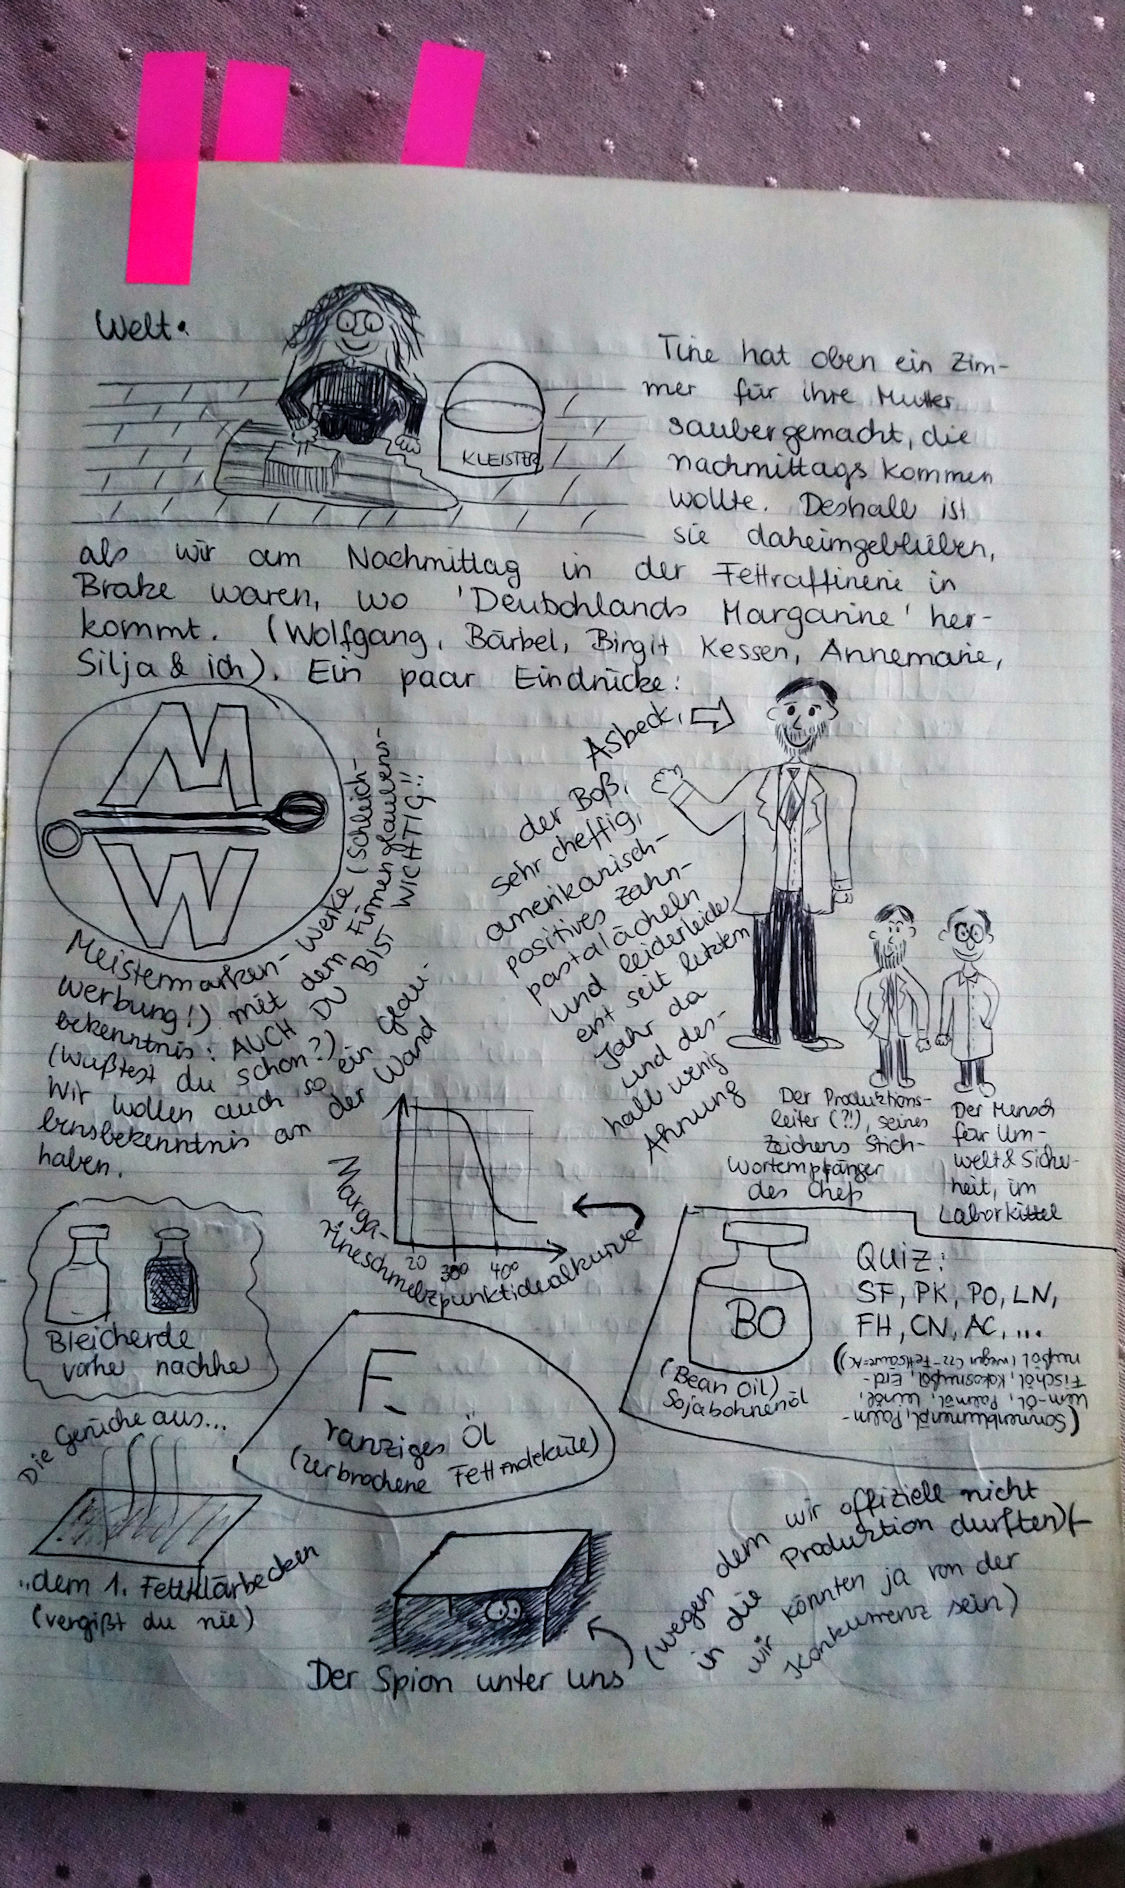 Welt.
KLEISTER
Tine hat oben ein Zim-
mer für ihre Mutter
saubergemacht, die
nachmittags kommen
wollte. Deshalb ist
sie daheimgeblieben,
als wir am Nachmittag in der Fettraffinerie in
Brake waren, wo 'Deutschlands Margarine' her-
kommt. (Wolfgang, Bärbel, Birgit Kessen, Annemarie,
Silja & ich). Ein paar Eindrücke:
M
W
Meistermarken-Werke (Schleich-
werbung!) mit dem Firmenglaubens-
bekenntnis: AUCH DU BIST WICHTIG!!
(Wußtest du schon?)
Wir wollen auch so ein Glau-
bensbekenntnis an der Wand
haben.
Asbeck,
der Boß,
sehr cheffig,
amerikanisch-
positives Zahn-
pastalächeln
und leiderleider
erst seit letztem
Jahr da
und des-
halb wenig
Ahnung
Der Produktions-
leiter (?!), seines
Zeichens Stich-
wortempfänger
des Chefs
Der Mensch
für Um-
welt & Sicher-
heit, im
Laborkittel
20 30° 40°
Marga-
rineschmelzpunktidealkurve
Bleicherde
vorher nachher
BO
(Bean Oil)
Sojabohnenöl
QUIZ:
SF, PK, PO, LN,
FH, CN, AC, ...
(Sonnenblumenöl, Palm-
kern-Öl, Palmöl, Leinöl,
Fischöl, Kokosnußöl, Erd-
nußöl (wegen C22-Fettsäure=AC))
F
ranziges Öl
(zerbrochene Fettmoleküle)
Die Gerüche aus...
..dem 1. Fettklärbecken
(vergißt du nie)
Der Spion unter uns
(wegen dem wir offiziell nicht
in die Produktion durften)(-
wir könnten ja von der
Konkurrenz sein)